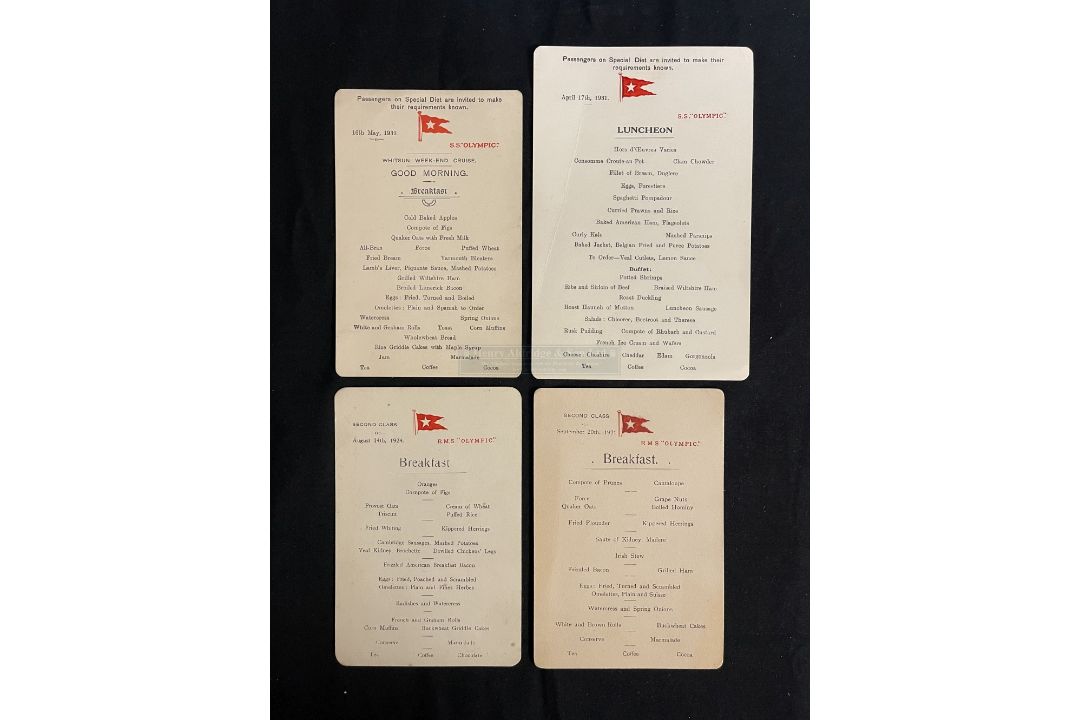 Passengers on Special Diet are invited to make
their requirements known.
16th May, 1931
S.S. "OLYMPIC."
WHITSUN WEEK-END CRUISE.
GOOD MORNING.
Breakfast
Cold Baked Apples
Compote of Figs
Quaker Oats with Fresh Milk
All-Bran Force Puffed Wheat
Fried Bream Yarmouth Bloaters
Lamb's Liver, Piquante Sauce, Mashed Potatoes
Grilled Wiltshire Ham
Broiled Limerick Bacon
Eggs: Fried, Turned and Boiled
Omelettes: Plain and Spanish to Order
Watercress Spring Onions
White and Graham Rolls Toast Corn Muffins
Wholewheat Bread
Rice Griddle Cakes with Maple Syrup
Jam Marmalade
Tea Coffee Cocoa
Passengers on Special Diet are invited to make their
requirements known.
April 17th, 1931.
S.S. "OLYMPIC."
LUNCHEON
Hors d'Œuvres Varies
Consomme Croute-au-Pot Clam Chowder
Fillet of Bream, Duglere
Eggs, Forestiere
Spaghetti Pompadour
Curried Prawns and Rice
Baked American Ham, Flageolets
Curly Kale Mashed Parsnips
Baked Jacket, Belgian Fried and Puree Potatoes
To Order—Veal Cutlets, Lemon Sauce
Buffet:
Potted Shrimps
Ribs and Sirloin of Beef Braised Wiltshire Ham
Roast Duckling
Roast Haunch of Mutton Luncheon Sausage
Salads: Chicoree, Beetroot and Therese
Rusk Pudding Compote of Rhubarb and Custard
French Ice Cream and Wafers
Cheese: Cheshire Cheddar Edam Gorgonzola
Tea Coffee Cocoa
Henry Aldridge &
SECOND CLASS
August 14th, 1924.
R.M.S "OLYMPIC."
Breakfast
Oranges
Compote of Figs
Provost Oats Cream of Wheat
Triscuit Puffed Rice
Fried Whiting Kippered Herrings
Cambridge Sausages, Mashed Potatoes
Veal Kidney, Brochette Devilled Chickens' Legs
Frizzled American Breakfast Bacon
Eggs: Fried, Poached and Scrambled
Omelettes: Plain and Fines Herbes
Radishes and Watercress
French and Graham Rolls
Corn Muffins Buckwheat Griddle Cakes
Conserve Marmalade
Tea Coffee Chocolate
SECOND CLASS
September 20th,
R.M.S "OLYMPIC."
Breakfast.
Compote of Prunes Cantaloupe
Force Grape Nuts
Quaker Oats Boiled Hominy
Fried Flounder Kippered Herrings
Saute of Kidney, Madere
Irish Stew
Frizzled Bacon Grilled Ham
Eggs: Fried, Turned and Scrambled
Omelettes, Plain and Suisse
Watercress and Spring Onions
White and Brown Rolls Buckwheat Cakes
Conserve Marmalade
Tea Coffee Cocoa